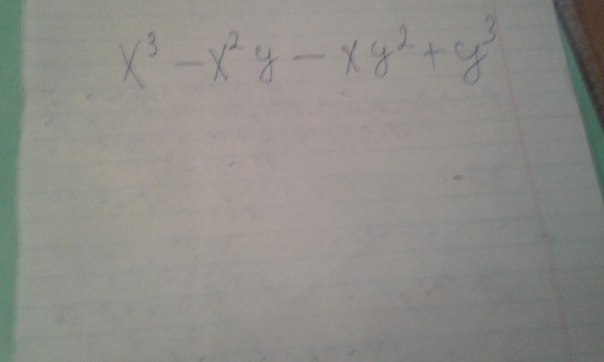 x³ - x²y - xy² + y³